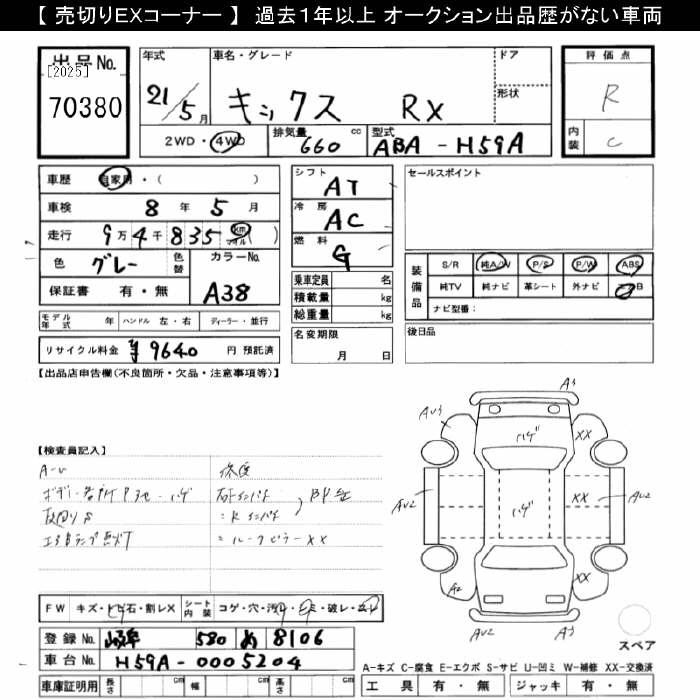 【 売切りEXコーナー 】 過去1年以上 オークション出品歴がない車両
出品No.
[2025]
70380
年式
21/5月
車名・グレード
キックス RX
ドア
形状
評価点
R
内装
C
2WD・4WD
排気量
660 cc
型式
ABA-H59A
車歴 自家用・( )
車検 8年 5月
走行 9万4千835 km マイル ( )
色 グレー 色替
カラーNo.
A38
保証書 有・無
シフト
AT
冷房
AC
燃料
G
乗車定員 名
積載量 kg
総重量 kg
名変期限
月 日
セールスポイント
装備品
S/R 純A/W P/S P/W ABS
純TV 純ナビ 革シート 外ナビ エアB
ナビ型番：
後日品
モデル年式 年 ハンドル 左・右 ディーラー・並行
リサイクル料金 ¥9640 円 預託済
【出品店申告欄(不良箇所・欠品・注意事項等)】
【検査員記入】
A-U
修復
XX
FW キズ・トビ石・割レX
シート内装 コゲ・穴・汚レ・シミ・破レ・スレ
登録No. 岐阜 580 め 8106
車台No. H59A-0005204
車庫証明用 長さ cm 幅 cm 高さ cm
A3
AU3
ハゲ
XX
AU2
ハゲ
XX
AU2
A2
XX
AU2
A3
スペア
A-キズ C-腐食 E-エクボ S-サビ U-凹ミ W-補修 XX-交換済
工具 有・無 ジャッキ 有・無